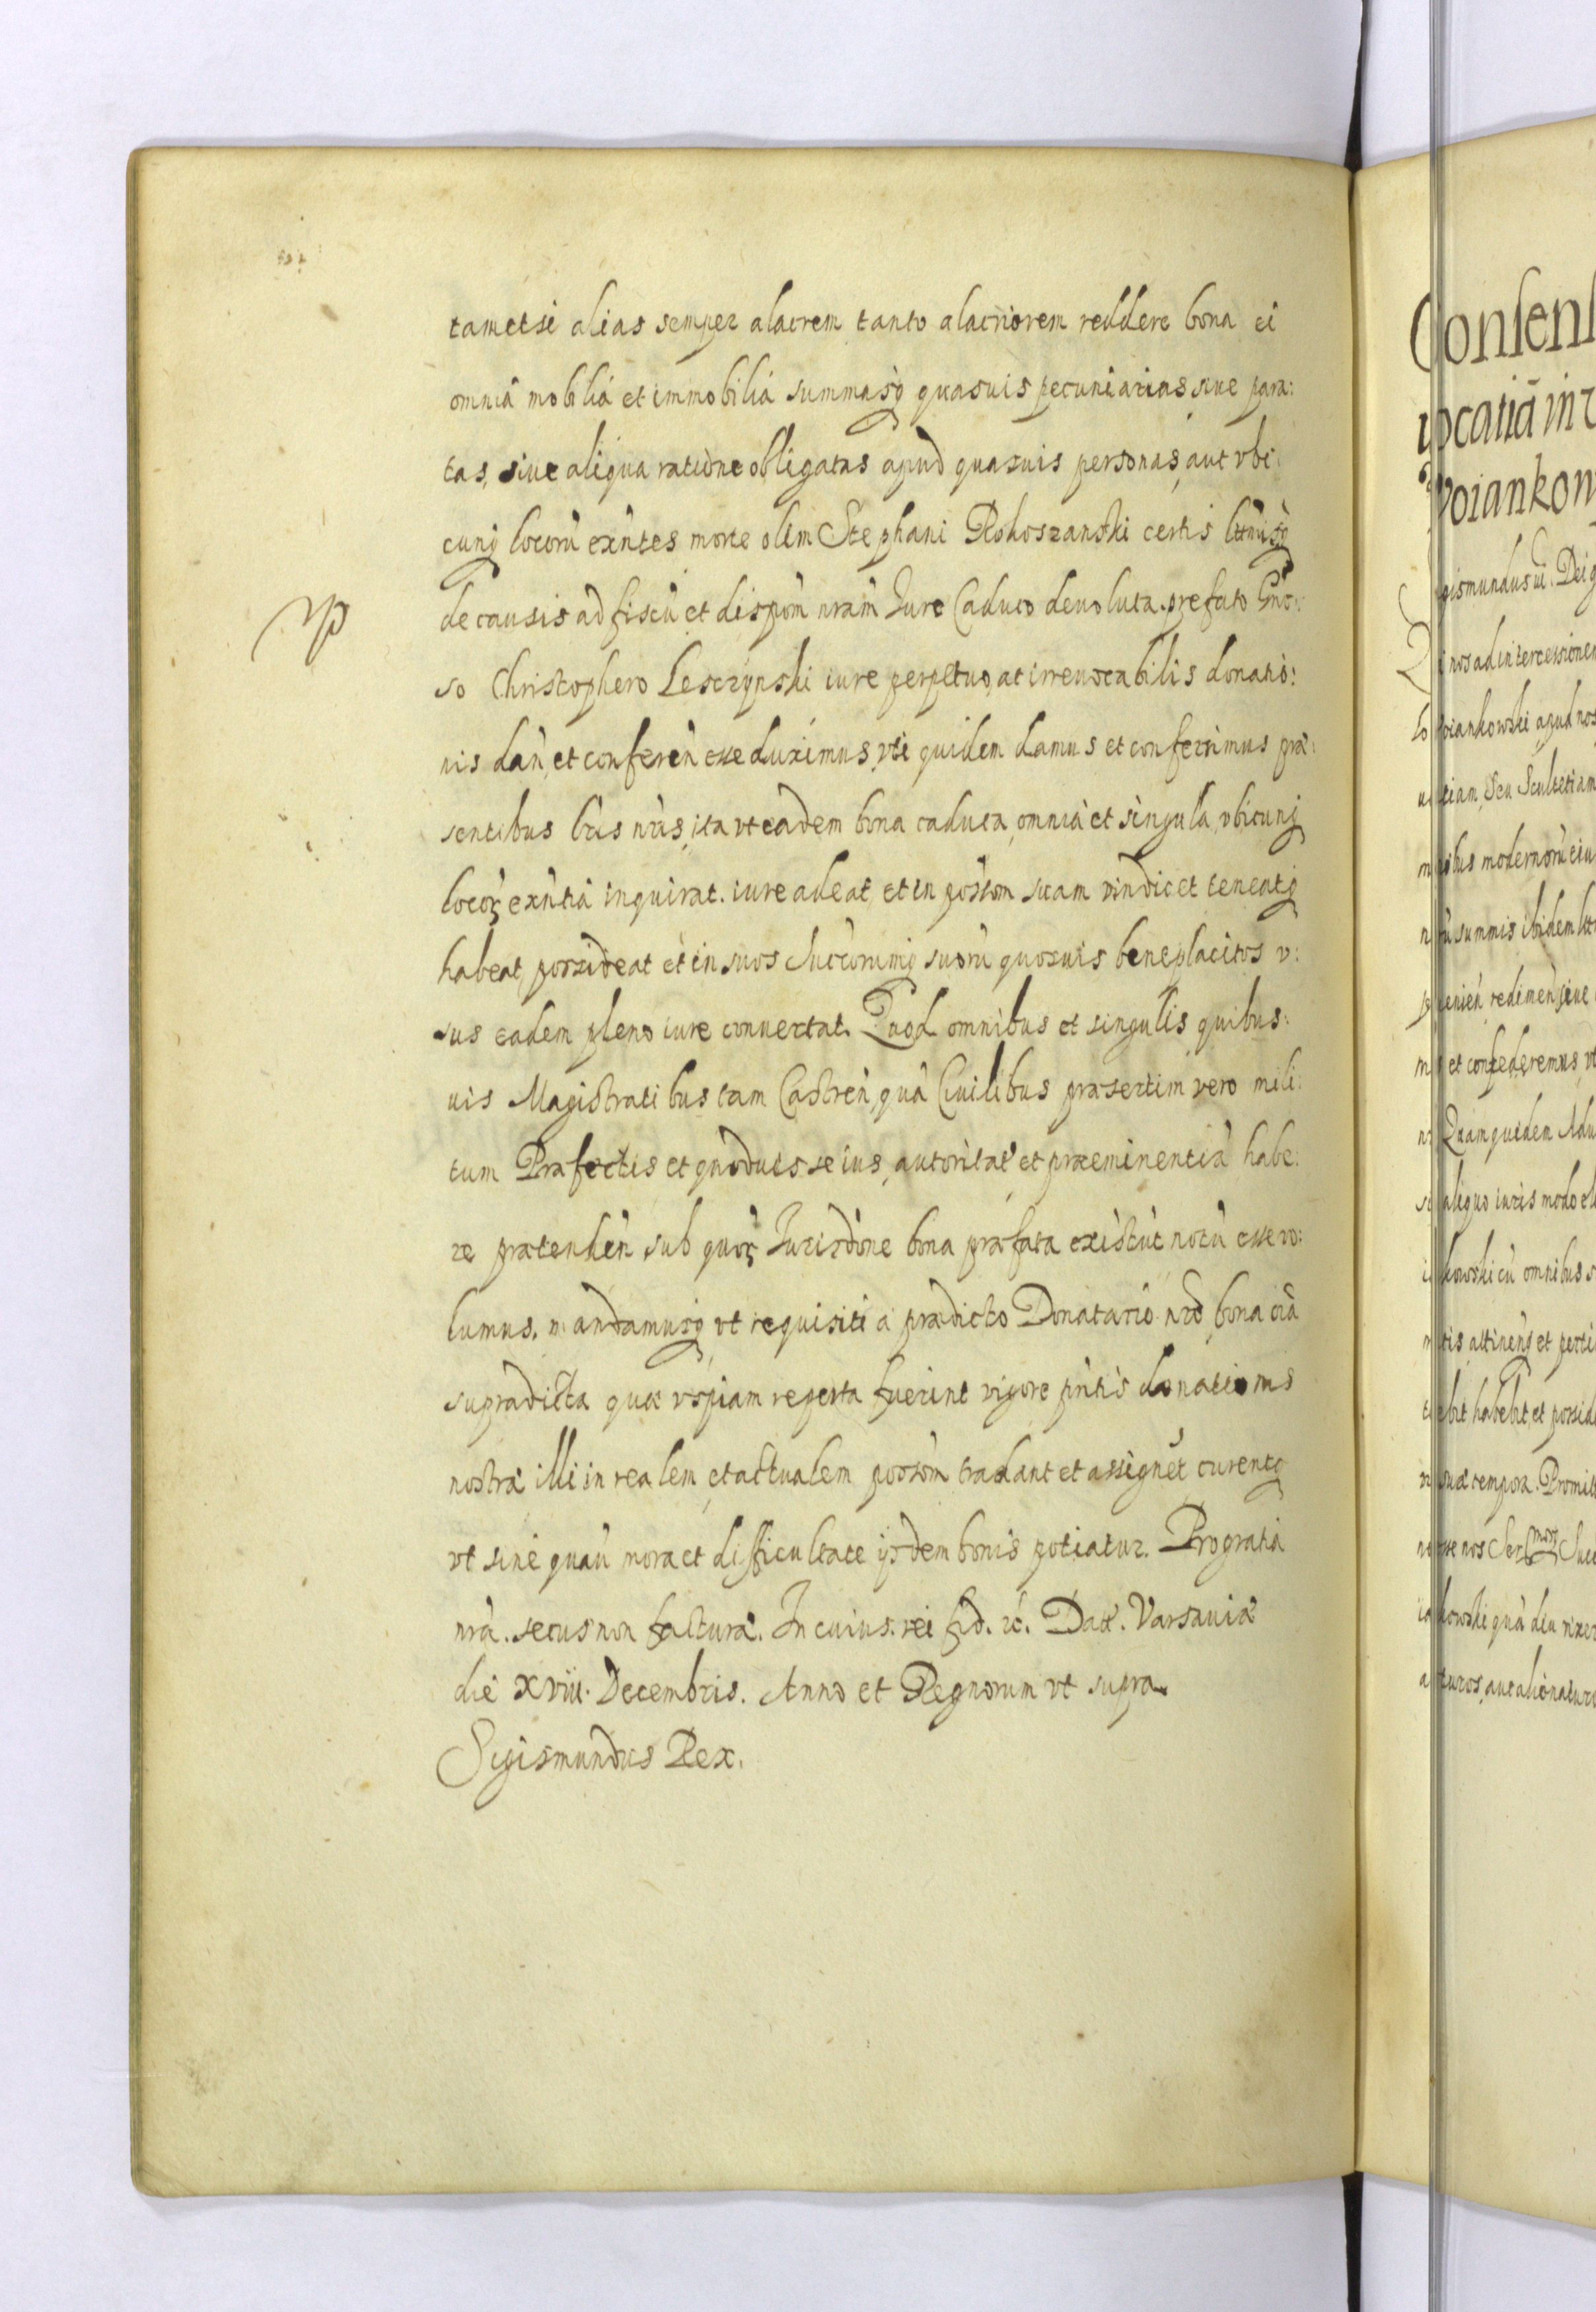 tametsi alias semper alacrem tanto alacriorem reddere bona ei
omnia mobilia et immobilia summasq quasuis pecuniarias siue para:
tas, siue aliqua ratione obligatas apud quasuis personas, aut vbi
cunq locorũ exñtes morte olim Stephani Rokoszanski certis ltimisq
de causis ad fiscũ et dispõm nrãm Iure Caduco deuoluta prefato Gño:
so Christophero Lesczynski iure perpetuo, at irreuocabilis donatio:
nis dañ, et conferẽn esse duximus, vti quidem damus et conferimus præ:
sentibus lris nris, ita vt eadem bona caduca, omnia et singula, vbicunq
locoꝝ exñtia inquirat. iure adeat, et in possom suam vindicet teneatq
habeat, possideat et in suos Succorumq suorũ quosuis beneplacitos v:
sus eadem pleno iure conuertat. Quod omnibus et singulis quibus:
uis Magistratibus tam Castreñ, quã Ciuilibus præsertim vero mili:
tum Præfectis et quoduis se ius, autoritatẽ et præeminentiã habe:
re prætendeñ sub quoꝝ Iurisdõne bona præfata existũt notũ esse vo:
lumus. mandamusq vt requisiti a prædicto Donatario nro bona oĩa
supradicta quæ vspiam reperta fuerint vigore pñtis donationis
nostræ illi in realem, et actualem possom tradant et assignẽt curentq
vt sine quauis mora et difficultate ijsdem bonis potiatur. Pro gratia
nrã. secus non facturi. In cuius. rei fid. rc. Dat. Varsauiæ
die xviii. Decembris. Anno et Regnorum vt supra
Sigismundus Rex.
Consen
uocatiã in
Woiankow
gismundus iii. Dei g
nos ad intercessionem
lo Woiankowski apud nos
tiam, seu Scultetiam
summis ibidem
et confederemus, vt
Quamquidem Adu
aliquo iuris modo
kowski cũ omnibus
tis attinenq et perti
habebit, et possid
tempora. Promitt
nos Ser
kowski quã diu vixe
turos, aut alienaturo